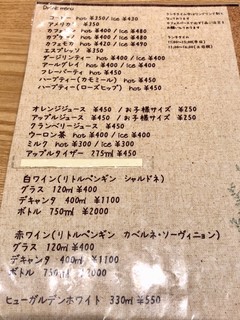 Drink menu
コーヒー hot ¥350/ice ¥430
アメリカン ¥350
カフェラテ hot ¥400/ice ¥480
カプチーノ hot ¥400/ice ¥480
カフェモカ hot ¥420/ice ¥490
エスプレッソ ¥350
ダージリンティー hot ¥400/ice ¥400
アールグレイ hot ¥400/ice ¥400
フレーバーティ ¥450
ハーブティー(カモミール) ¥450
ハーブティー(ローズヒップ) ¥450
オレンジジュース ¥450 / お子様サイズ ¥250
アップルジュース ¥450 / お子様サイズ ¥250
クランベリージュース ¥450
ウーロン茶 hot ¥400/ice ¥400
ミルク hot ¥300/ice ¥300
アップルタイザー 275ml ¥450
白ワイン(リトルペンギン シャルドネ)
グラス 120ml ¥400
デキャンタ 400ml ¥1100
ボトル 750ml ¥2000
赤ワイン(リトルペンギン カベルネ・ソーヴィニョン)
グラス 120ml ¥400
デキャンタ 400ml ¥1100
ボトル 750ml ¥2000
ヒューガルデンホワイト 330ml ¥550